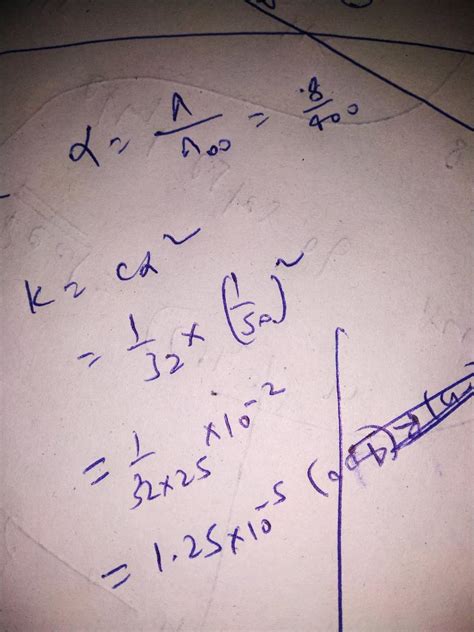 α = Λ/Λ∞ = 8/400
K = cα²
= 1/32 × (1/50)²
= 1/32×25 × 10⁻²
= 1.25×10⁻⁵